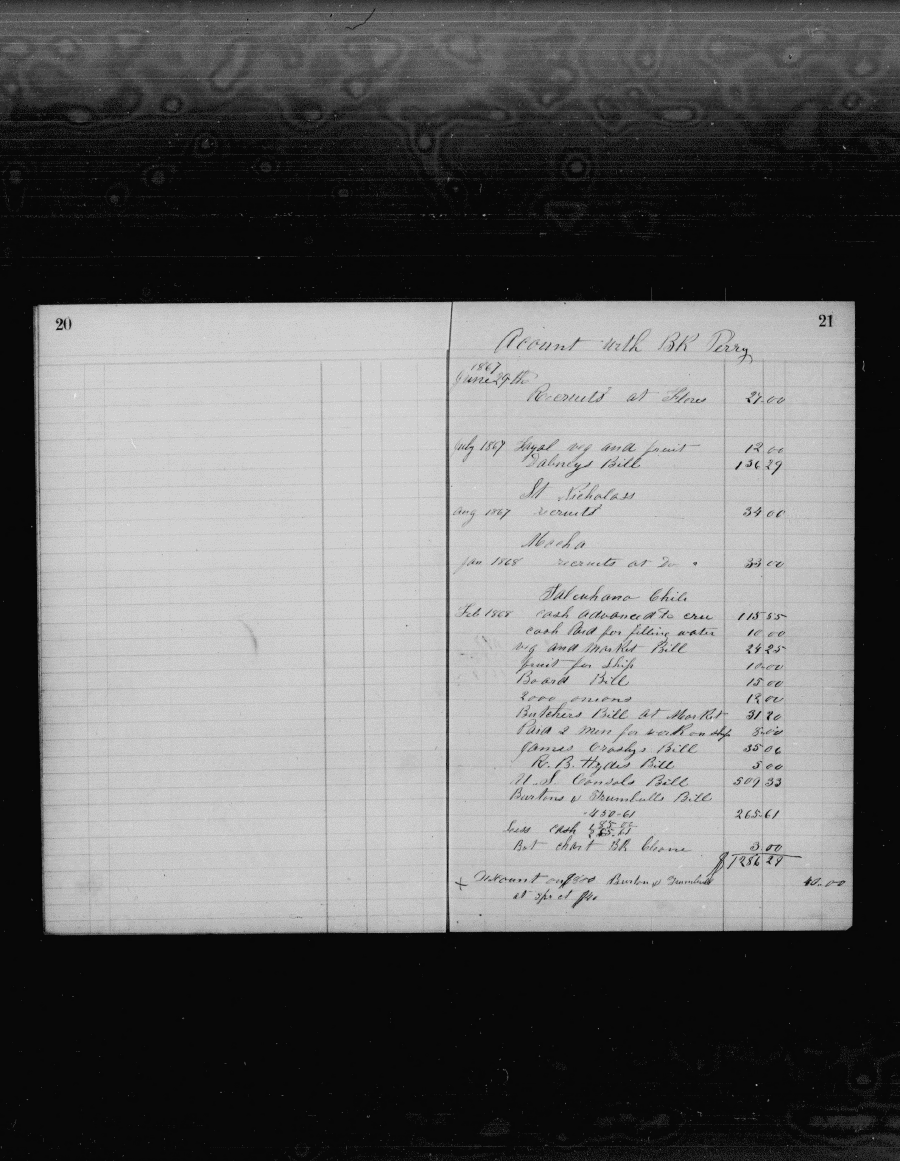 20
21
Acount with BK Perry
1867
June 29th
Recruits at Flores 27.00
July 1867 Fayal veg and fruit 12 00
Dabneys Bill 136 29
St Nicholass
Aug 1867 recruits 34 00
Mocha
Jan 1868 recruits at Do 33 00
Talcuhano Chile
Feb 1868 cash advanced to crew 115 55
cash Paid for filling water 10 00
veg and Market Bill 24 25
fruit for Ship 10.00
Board Bill 15 00
2000 onions 12 00
Butchers Bill at Market 31 20
Paid 2 men for work on ship 8.00
James Crosbys Bill 35 06
R. B. Hydes Bill 5 00
U. S. Consols Bill 509 33
Burtons & Trumbulls Bill
-450-61 265.61
Less cash
Bot chart BK Chane 3.00
$1286 29
+ Discount on $800 Burton & Trumbull 40.00
at 5pr ct $40